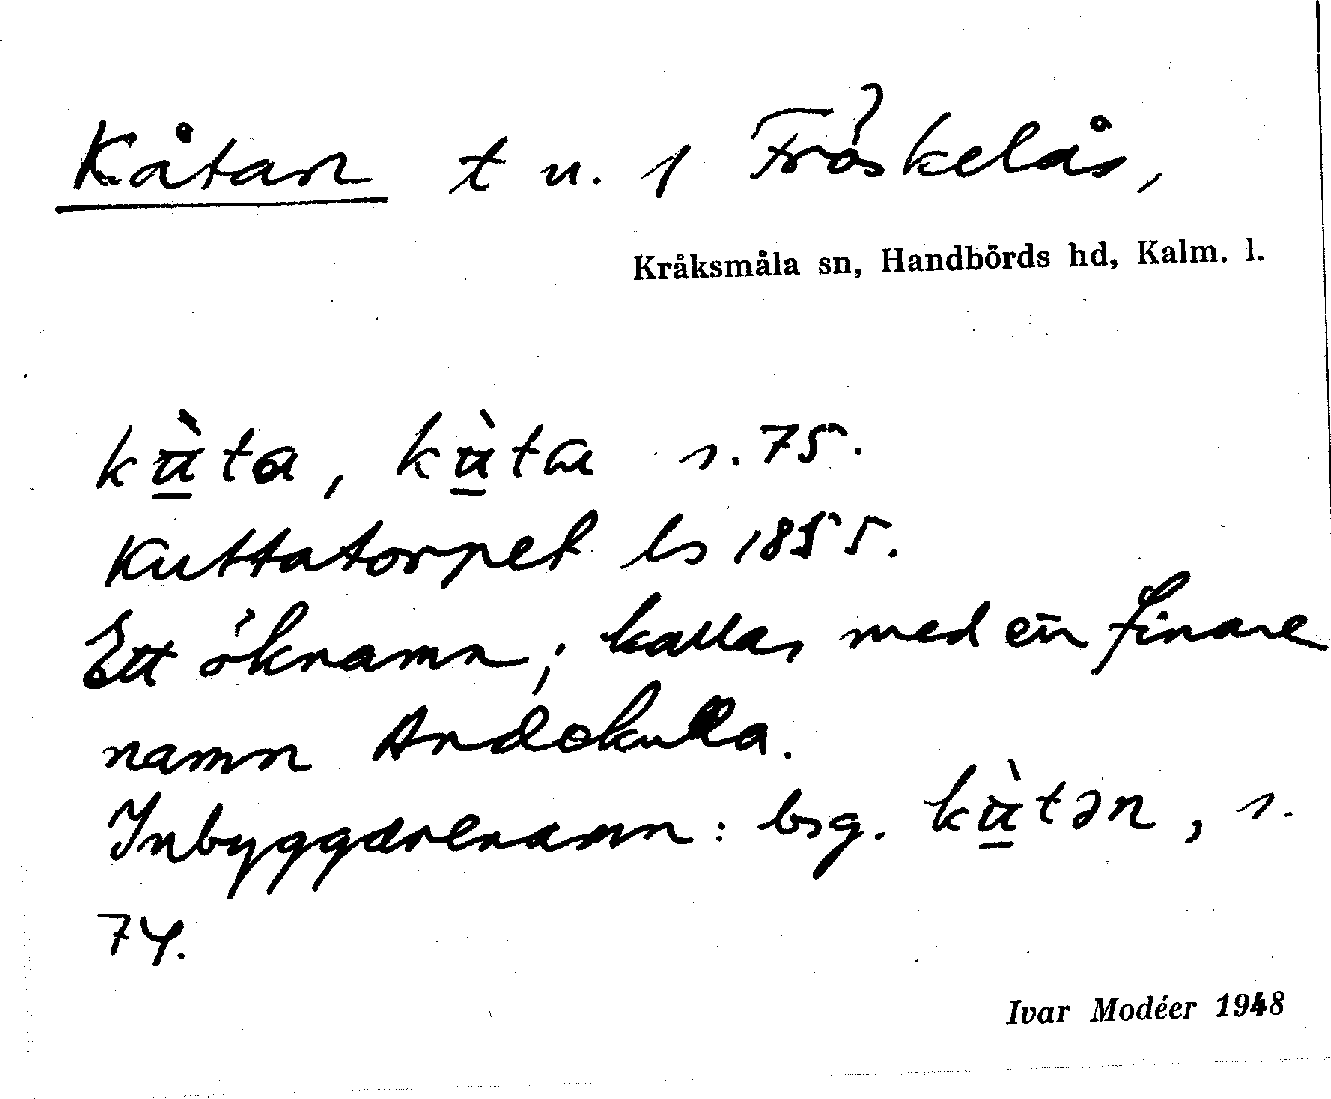 Kåtan t u. 1 Fröskelås,
Kråksmåla sn, Handbörds hd, Kalm. l.
kù̱ta, kù̱ta s. 75.
Kuttatorpet ls 1855.
Ett öknamn; kallas med en finare
namn Andekulla.
Inbyggarenamn: bsg. kù̱tən, s.
74.
Ivar Modéer 1948